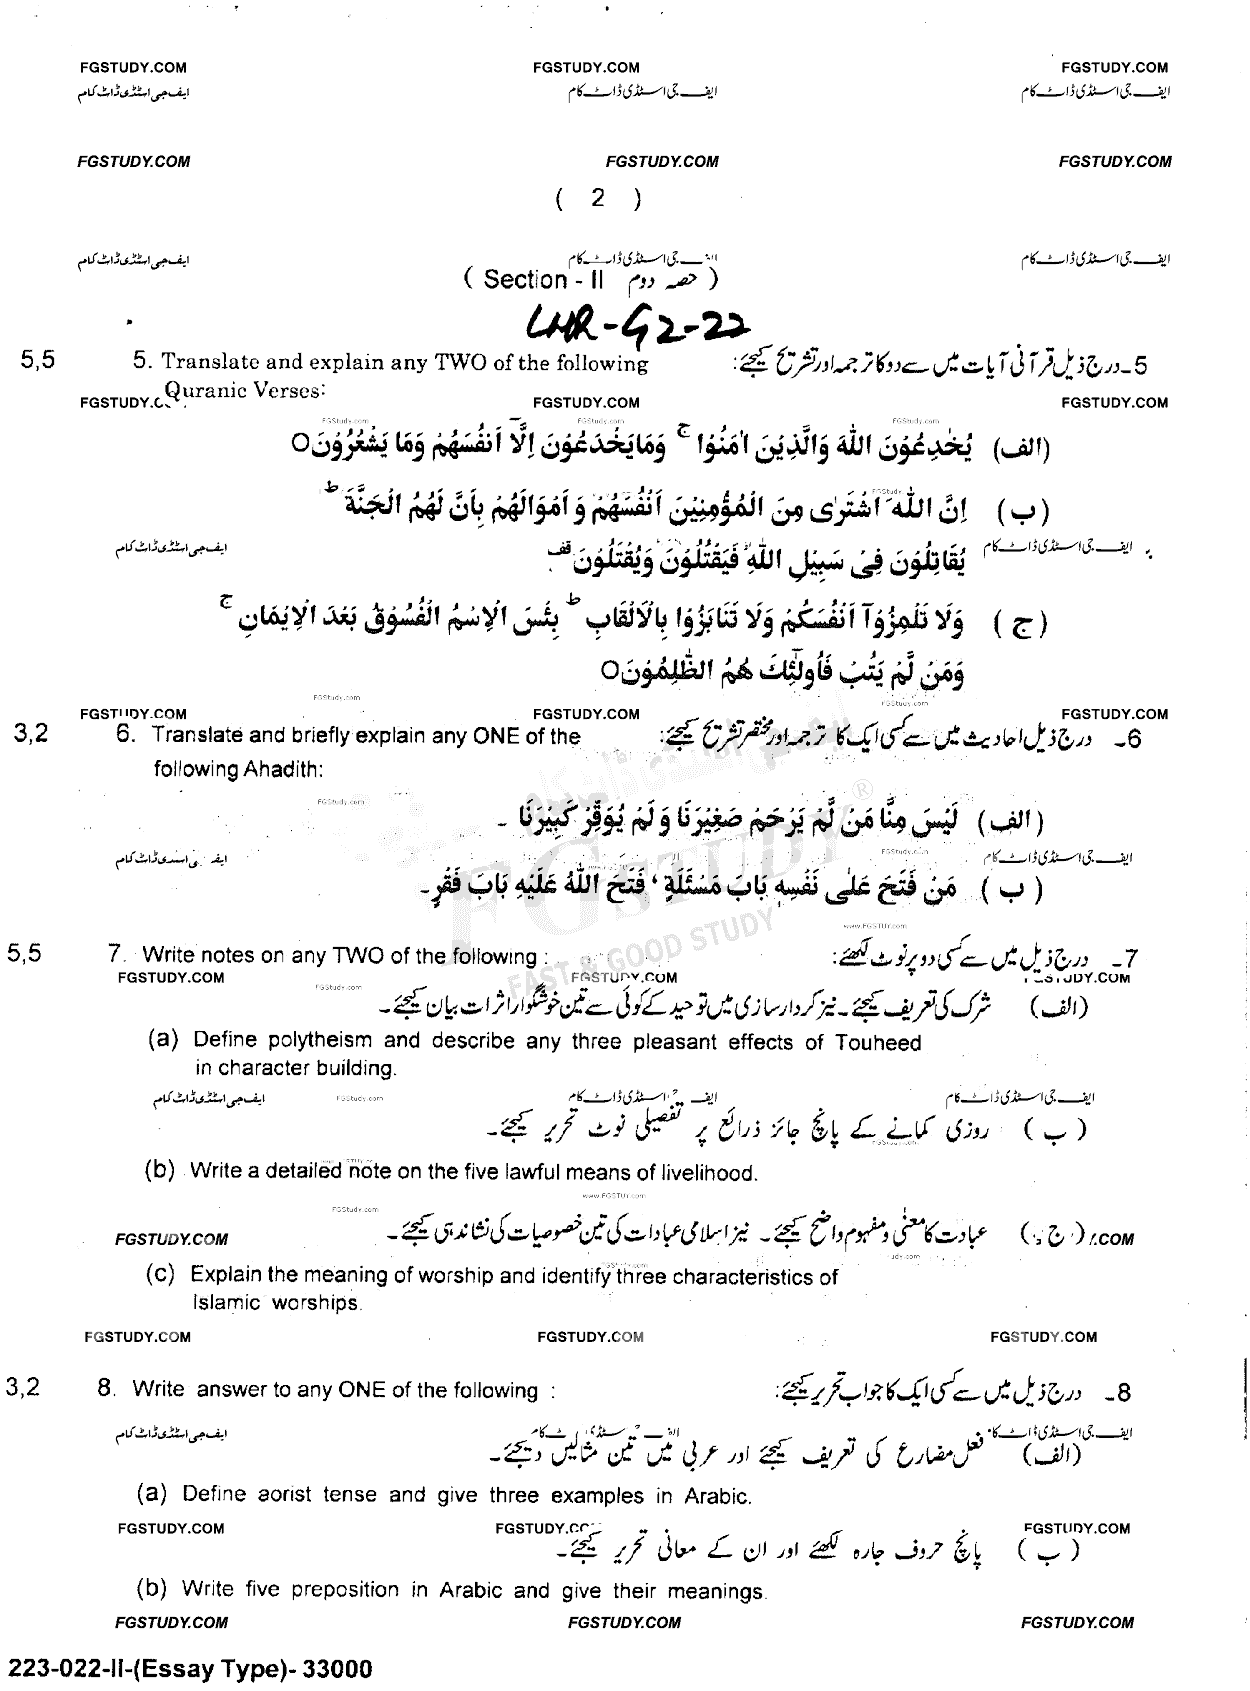 FGSTUDY.COM FGSTUDY.COM FGSTUDY.COM
ایف جی اسٹڈی ڈاٹ کام ایف جی اسٹڈی ڈاٹ کام ایف جی اسٹڈی ڈاٹ کام
FGSTUDY.COM FGSTUDY.COM FGSTUDY.COM
( 2 )
ایف جی اسٹڈی ڈاٹ کام جی اسٹڈی ڈاٹ کام ایف جی اسٹڈی ڈاٹ کام
( Section - II حصہ دوم )
LHR-G2-22
5,5 5. Translate and explain any TWO of the following 5۔ درج ذیل قرآنی آیات میں سے دو کا ترجمہ اور تشریح کیجئے:
Quranic Verses:
FGSTUDY.COM FGSTUDY.COM
FGStudy.com FGStudy.com FGStudy.com
(الف) يُخٰدِعُوْنَ اللّٰهَ وَالَّذِيْنَ اٰمَنُوْا ۚ وَمَا يَخْدَعُوْنَ اِلَّآ اَنْفُسَهُمْ وَمَا يَشْعُرُوْنَ ○
(ب) اِنَّ اللّٰهَ اشْتَرٰى مِنَ الْمُؤْمِنِيْنَ اَنْفُسَهُمْ وَ اَمْوَالَهُمْ بِاَنَّ لَهُمُ الْجَنَّةَ ؕ
ایف جی اسٹڈی ڈاٹ کام ایف جی اسٹڈی ڈاٹ کام
يُقَاتِلُوْنَ فِىْ سَبِيْلِ اللّٰهِ فَيَقْتُلُوْنَ وَيُقْتَلُوْنَ قف
(ج) وَلَا تَلْمِزُوْٓا اَنْفُسَكُمْ وَلَا تَنَابَزُوْا بِالْاَلْقَابِ ؕ بِئْسَ الْاِسْمُ الْفُسُوْقُ بَعْدَ الْاِيْمَانِ ۚ
وَمَنْ لَّمْ يَتُبْ فَاُولٰٓئِكَ هُمُ الظّٰلِمُوْنَ ○
FGStudy.com FGStudy.com
FGSTUDY.COM FGSTUDY.COM FGSTUDY.COM
3,2 6. Translate and briefly explain any ONE of the 6۔ درج ذیل احادیث میں سے کسی ایک کا ترجمہ اور مختصر تشریح کیجئے:
following Ahadith:
FGStudy.com
(الف) لَيْسَ مِنَّا مَنْ لَّمْ يَرْحَمْ صَغِيْرَنَا وَ لَمْ يُوَقِّرْ كَبِيْرَنَا ۔
ایف جی اسٹڈی ڈاٹ کام
(ب) مَنْ فَتَحَ عَلٰى نَفْسِهٖ بَابَ مَسْئَلَةٍ ، فَتَحَ اللّٰهُ عَلَيْهِ بَابَ فَقْرٍ ۔
FGSTUDY ®
FAST & GOOD STUDY
www.FGSTUY.com
5,5 7. Write notes on any TWO of the following : 7۔ درج ذیل میں سے کسی دو پر نوٹ لکھئے:
FGSTUDY.COM FGSTUDY.COM
FGStudy.com
(الف) شرک کی تعریف کیجئے۔ نیز کردار سازی میں توحید کے کوئی سے تین خوشگوار اثرات بیان کیجئے۔
(a) Define polytheism and describe any three pleasant effects of Touheed
in character building.
ایف جی اسٹڈی ڈاٹ کام FGStudy.com ایف جی اسٹڈی ڈاٹ کام ایف جی اسٹڈی ڈاٹ کام
(ب) روزی کمانے کے پانچ جائز ذرائع پر تفصیلی نوٹ تحریر کیجئے۔
(b) Write a detailed note on the five lawful means of livelihood.
www.FGSTUY.com
FGStudy.com
FGSTUDY.COM (ج) عبادت کا معنٰی و مفہوم واضح کیجئے۔ نیز اسلامی عبادات کی تین خصوصیات کی نشاندہی کیجئے۔
(c) Explain the meaning of worship and identify three characteristics of
Islamic worships.
FGSTUDY.COM FGSTUDY.COM FGSTUDY.COM
3,2 8. Write answer to any ONE of the following : 8۔ درج ذیل میں سے کسی ایک کا جواب تحریر کیجئے:
ایف جی اسٹڈی ڈاٹ کام
(الف) فعل مضارع کی تعریف کیجئے اور عربی میں تین مثالیں دیجئے۔
(a) Define aorist tense and give three examples in Arabic.
FGSTUDY.COM FGSTUDY.COM
(ب) پانچ حروف جارہ لکھئے اور ان کے معانی تحریر کیجئے۔
(b) Write five preposition in Arabic and give their meanings.
FGSTUDY.COM FGSTUDY.COM FGSTUDY.COM
223-022-II-(Essay Type)- 33000